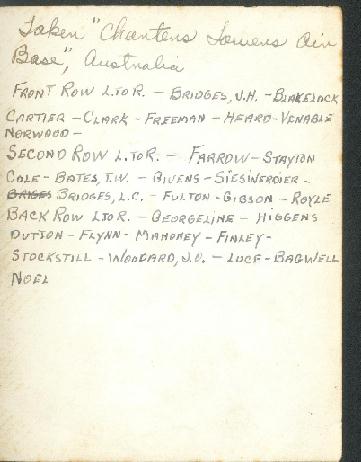 Taken "Charters Towers Air
Base", Australia
FRONT ROW L.TOR. - BRIDGES, J.H. - BLAKELOCK
CARTIER - CLARK - FREEMAN - HEARD - VENABLE
NORWOOD -
SECOND ROW L.TOR. - FARROW - STAYTON
COLE - BATES, T.W. - BIVENS - SIESWERDIER -
BRIDGES, L.C. - FULTON - GIBSON - ROYLE
BACK ROW L TOR. - GEORGELINE - HIGGENS
DUTTON - FLYNN - MAHONEY - FINLEY -
STOCKSTILL - WOODARD, J.V. - LUCE - BAGWELL
NOEL